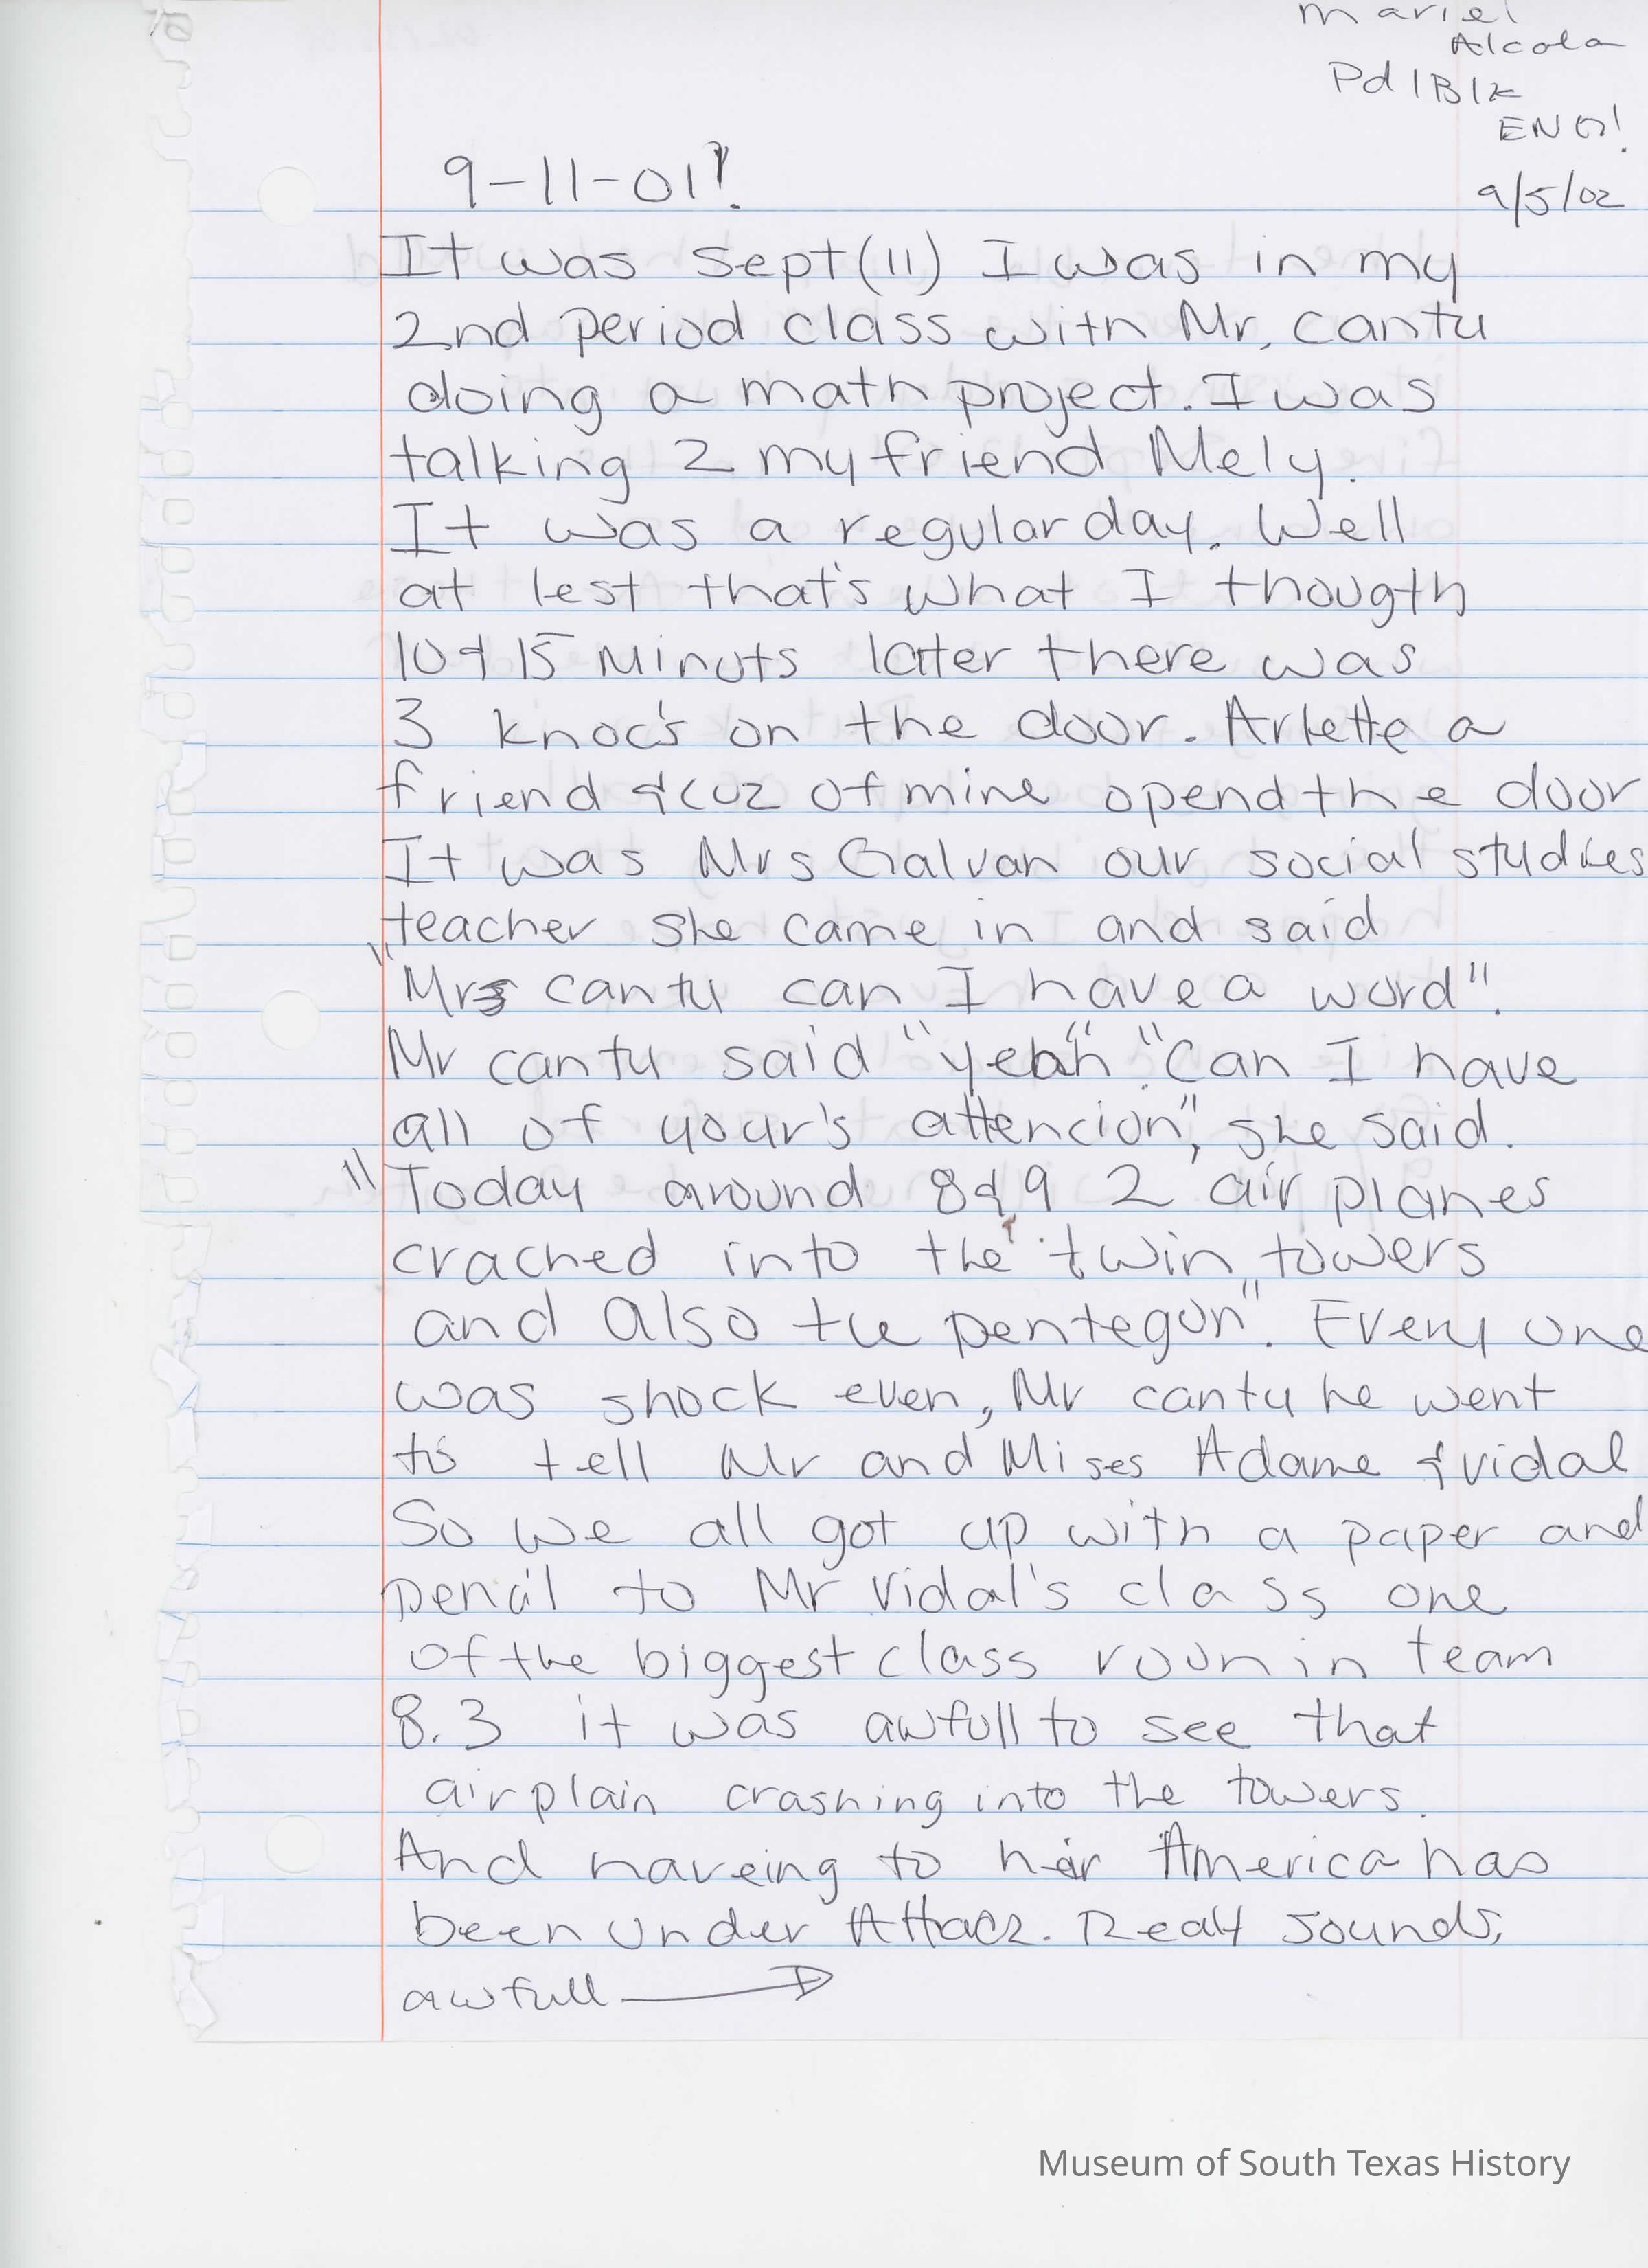 Mariel
Alcola
Pd 1Blk
ENG!
9/5/02
9-11-01!
It was Sept (11) I was in my
2nd period class with Mr. Cantu
doing a math project. I was
talking 2 my friend Mely.
It was a regular day. Well
at lest that's what I thougth
10 & 15 Minuts later there was
3 knoc's on the door. Arlette a
friend & cuz of mine opend the door
It was Mrs Galvan our social studies
teacher she came in and said
"Mrs cantu can I have a word".
Mr cantu said "yeah". "Can I have
all of your's attencion", she said.
"Today around 8 & 9 2 air planes
crached into the twin towers
and also the pentegon". Every one
was shock even, Mr cantu he went
to tell Mr and Mises Adame & vidal
So we all got up with a paper and
pencil to Mr Vidal's class one
of the biggest class room in team
8.3 it was awfull to see that
airplain crashing into the towers.
And haveing to hér America has
been under Attack. Realy sounds,
awfull →
Museum of South Texas History